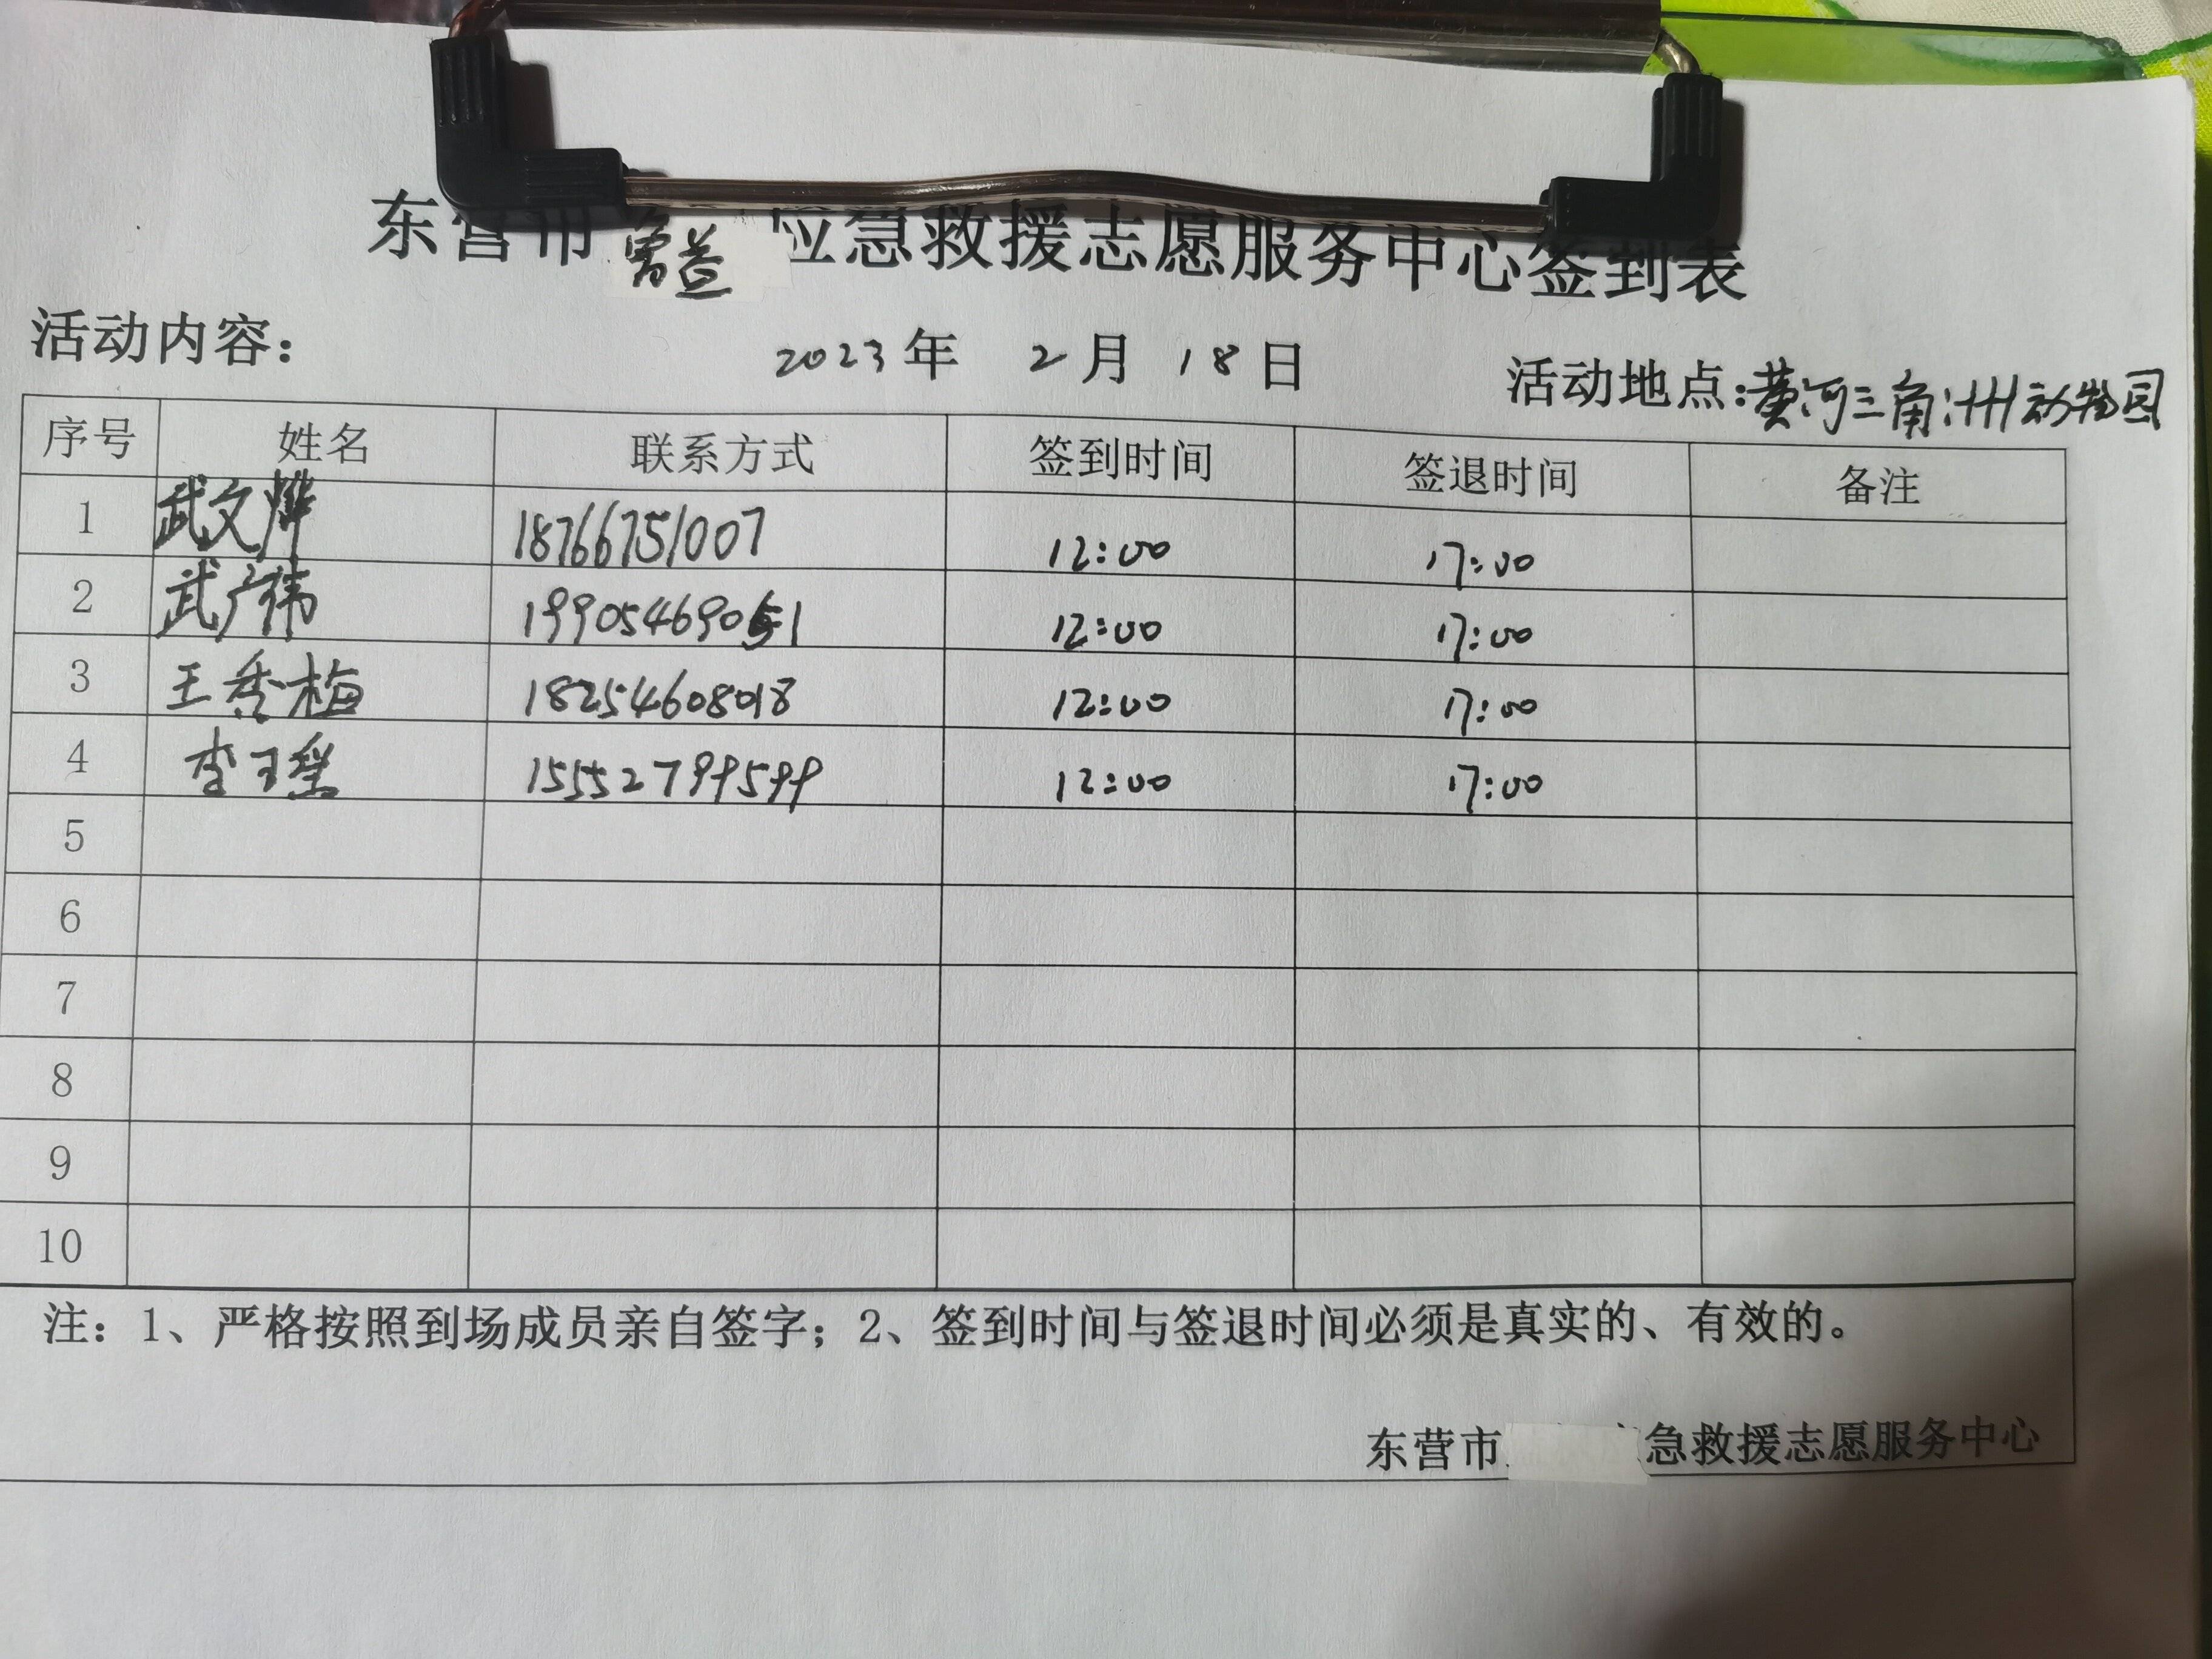 东营市曾益应急救援志愿服务中心签到表
活动内容： 2023年 2月 18日 活动地点:黄河三角洲动物园
序号 姓名 联系方式 签到时间 签退时间 备注
1 武文烨 18766751007 12:00 17:00
2 武广祎 19905469051 12:00 17:00
3 王秀梅 18254608018 12:00 17:00
4 李玉莹 15552799599 12:00 17:00
5
6
7
8
9
10
注：1、严格按照到场成员亲自签字；2、签到时间与签退时间必须是真实的、有效的。
东营市 急救援志愿服务中心